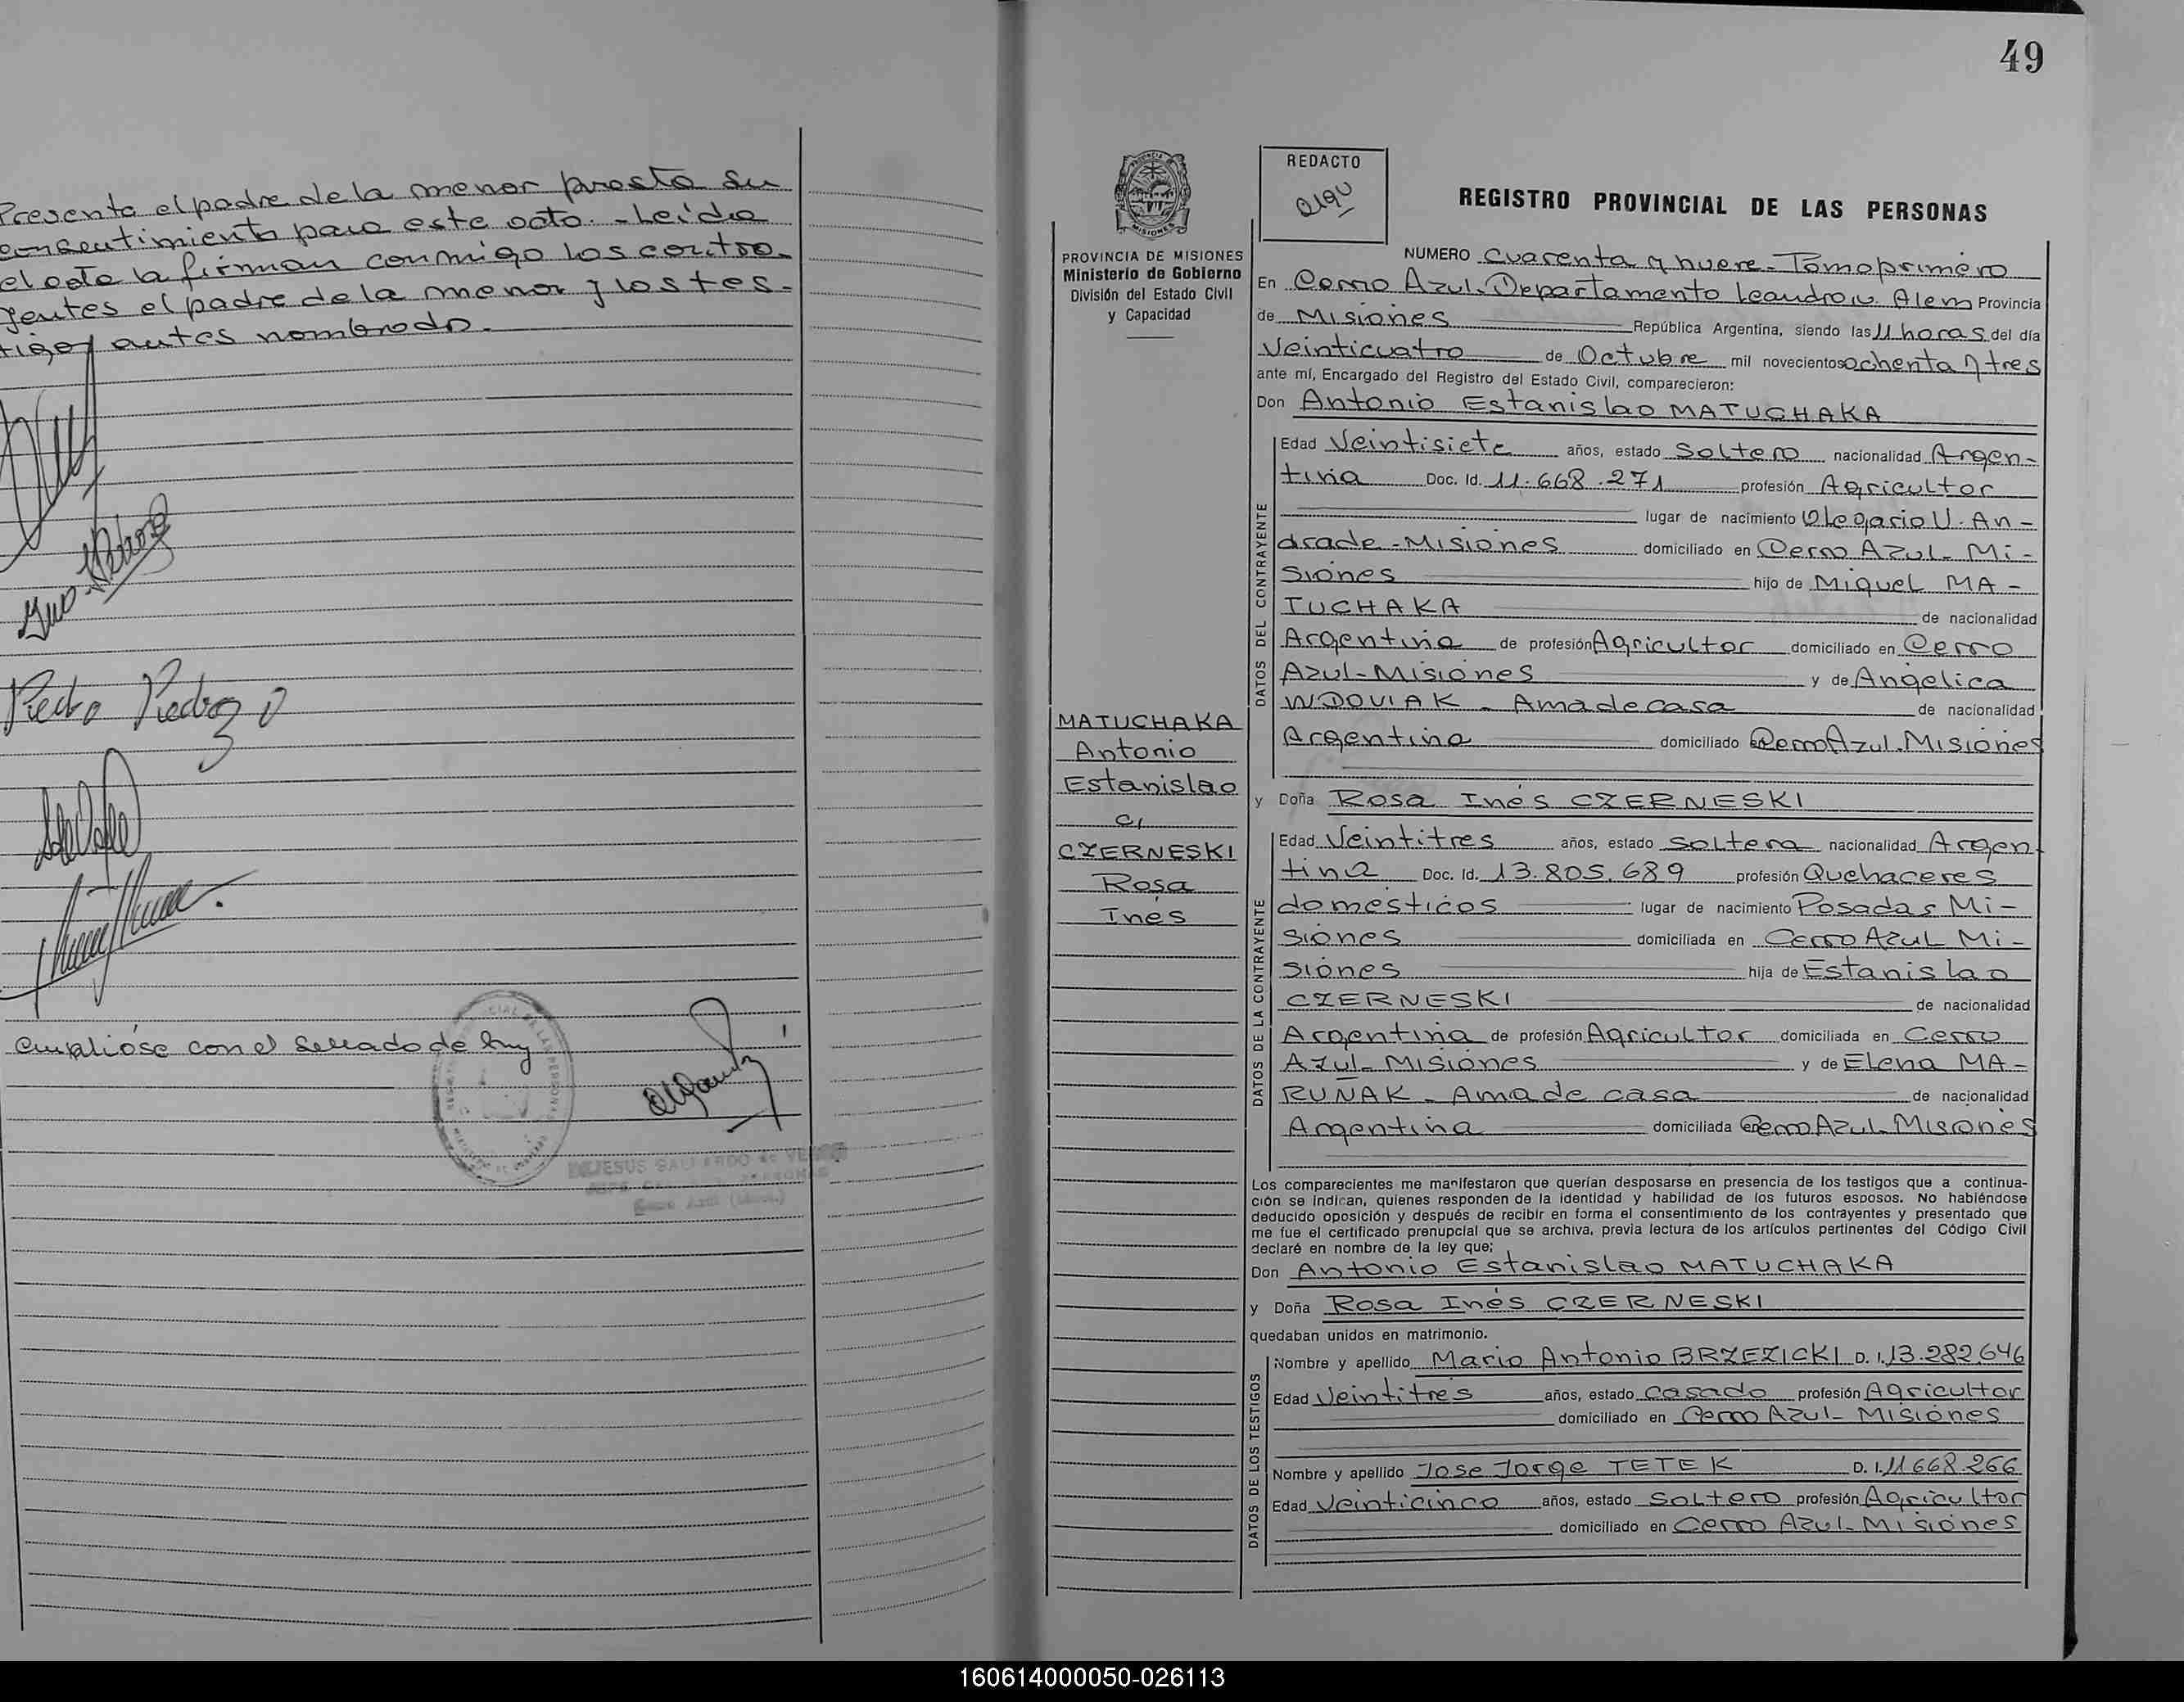 Presente el padre de la menor presta su
consentimiento para este acto.- Leída
el acta la firman conmigo los contra-
yentes el padre de la menor y los tes-
tigos antes nombrado.
Pedro Pedrozo
Cumplióse con el sellado de ley
49
REDACTO
REGISTRO PROVINCIAL DE LAS PERSONAS
PROVINCIA DE MISIONES
Ministerio de Gobierno
División del Estado Civil
y Capacidad
MATUCHAKA
Antonio
Estanislao
c/
CZERNESKI
Rosa
Inés
NUMERO Cuarenta y nueve - Tomo primero
En Cerro Azul. Departamento Leandro N. Alem Provincia
de Misiones República Argentina, siendo las 11 horas del día
Veinticuatro de Octubre mil novecientos ochenta y tres
ante mí, Encargado del Registro del Estado Civil, comparecieron:
Don Antonio Estanislao MATUCHAKA
DATOS DEL CONTRAYENTE
Edad Veintisiete años, estado Soltero nacionalidad Argen-
tina Doc. Id. 11.668.271 profesión Agricultor
lugar de nacimiento Olegario V. An-
drade - Misiones domiciliado en Cerro Azul - Mi-
siones hijo de Miguel MA-
TUCHAKA de nacionalidad
Argentina de profesión Agricultor domiciliado en Cerro
Azul - Misiones y de Angélica
WDOVIAK - Ama de casa de nacionalidad
Argentina domiciliado en Cerro Azul. Misiones
y Doña Rosa Inés CZERNESKI
DATOS DE LA CONTRAYENTE
Edad Veintitres años, estado Soltera nacionalidad Argen
tina Doc. Id. 13.805.689 profesión Quehaceres
domésticos lugar de nacimiento Posadas Mi-
siones domiciliada en Cerro Azul Mi-
siones hija de Estanislao
CZERNESKI de nacionalidad
Argentina de profesión Agricultor domiciliada en Cerro
Azul - Misiones y de Elena MA-
RUÑAK - Ama de casa de nacionalidad
Argentina domiciliada en Cerro Azul Misiones
Los comparecientes me manifestaron que querían desposarse en presencia de los testigos que a continua-
ción se indican, quienes responden de la identidad y habilidad de los futuros esposos. No habiéndose
deducido oposición y después de recibir en forma el consentimiento de los contrayentes y presentado que
me fue el certificado prenupcial que se archiva, previa lectura de los artículos pertinentes del Código Civil
declaré en nombre de la ley que:
Don Antonio Estanislao MATUCHAKA
y Doña Rosa Inés CZERNESKI
quedaban unidos en matrimonio.
DATOS DE LOS TESTIGOS
Nombre y apellido Mario Antonio BRZEZICKI D. I. 13.282.646
Edad Veintitres años, estado casado profesión Agricultor
domiciliado en Cerro Azul - Misiones
Nombre y apellido Jose Jorge TETEK D. I. 11.668.266
Edad Veinticinco años, estado Soltero profesión Agricultor
domiciliado en Cerro Azul - Misiones
160614000050-026113